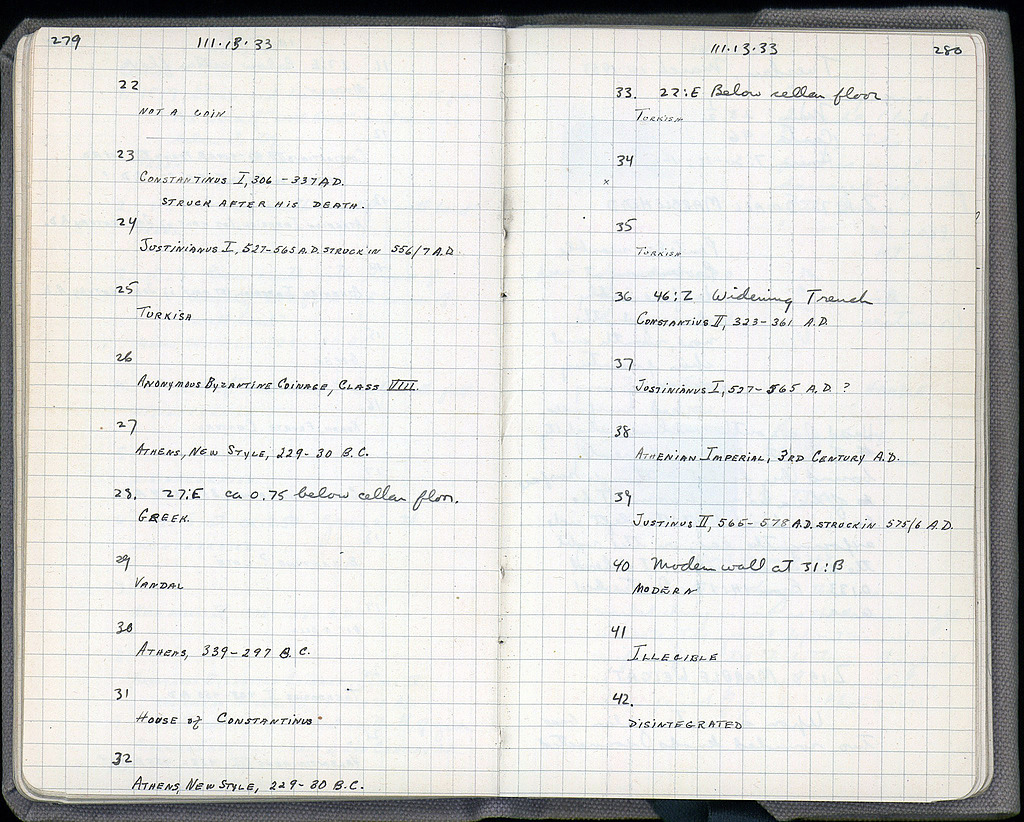 279
III·13·33
22
NOT A COIN
23
CONSTANTINUS I, 306 - 337 A.D.
STRUCK AFTER HIS DEATH.
24
JUSTINIANUS I, 527-565 A.D. STRUCK IN 556/7 A.D.
25
TURKISH
26
ANONYMOUS BYZANTINE COINAGE, CLASS IIII.
27
ATHENS, NEW STYLE, 229-30 B.C.
28. 27:E ca 0.75 below cellar floor.
GREEK.
29
VANDAL
30
ATHENS, 339-297 B.C.
31
HOUSE of CONSTANTINUS
32
ATHENS, NEW STYLE, 229-30 B.C.
III·13·33
280
33. 22:E Below cellar floor
TURKISH
34
x
35
TURKISH
36 46:Z Widening Trench
CONSTANTIUS II, 323-361 A.D.
37
JUSTINIANUS I, 527-565 A.D. ?
38
ATHENIAN IMPERIAL, 3RD CENTURY A.D.
39
JUSTINUS II, 565-578 A.D. STRUCK IN 575/6 A.D.
40 Modern wall at 31:B
MODERN
41
ILLEGIBLE
42.
DISINTEGRATED